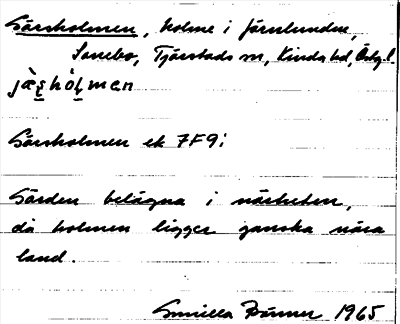 Gärsholmen, holme i Järnlunden,
Sonebo, Tjärstads sn, Kinds hd, Östg. l.
Gärsholmen ek 7F9i
Gärden belägna i närheten,
då holmen ligger ganska nära
land.
Gunilla 1965